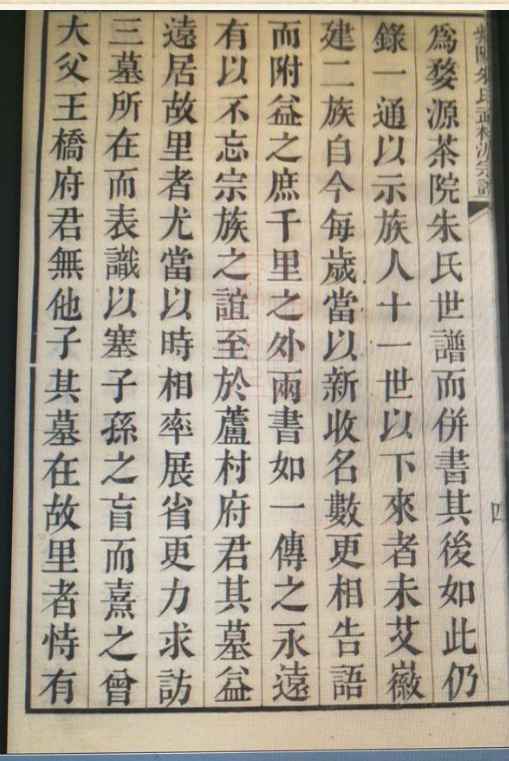 為婺源茶院朱氏世譜而併書其後如此仍
錄一通以示族人十一世以下來者未艾徽
建二族自今每歲當以新收名數更相告語
而附益之庶千里之外兩書如一傳之永遠
有以不忘宗族之誼至於蘆村府君其墓益
遠居故里者尤當以時相率展省更力求訪
三墓所在而表識以塞子孫之責而熹之曾
大父王橋府君無他子其墓在故里者恃有
四